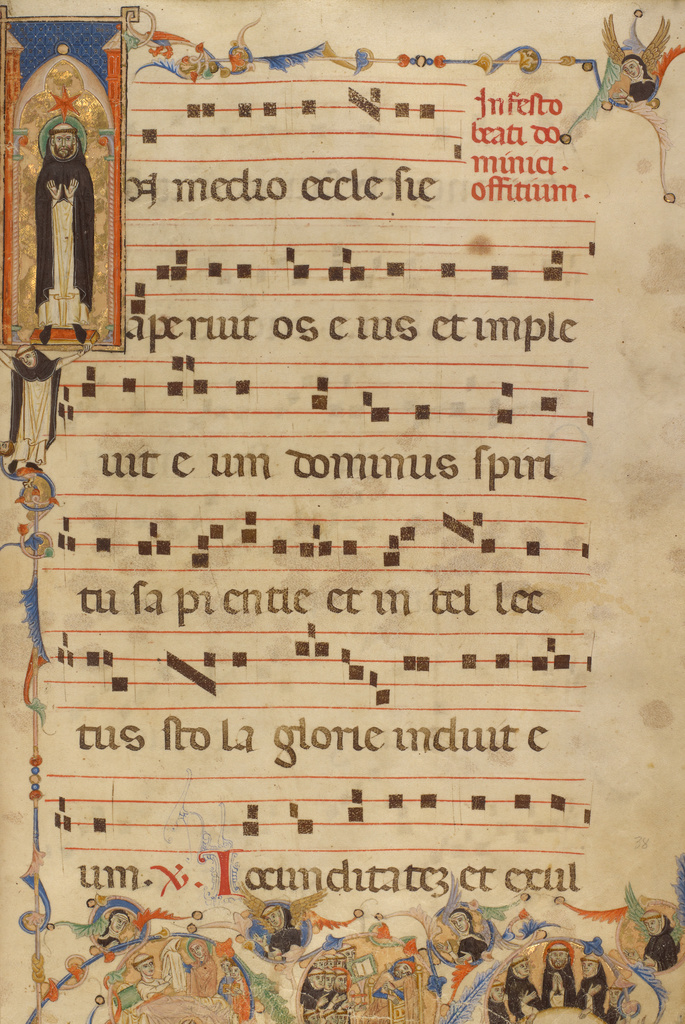 In festo
beati do
minici.
offitium.
N medio eccle sie
aperuit os e ius et imple
uit e um dominus spiri
tu sa pi entie et in tel lec
tus sto la glorie induit e
um. V. Iocunditatez et exul
38